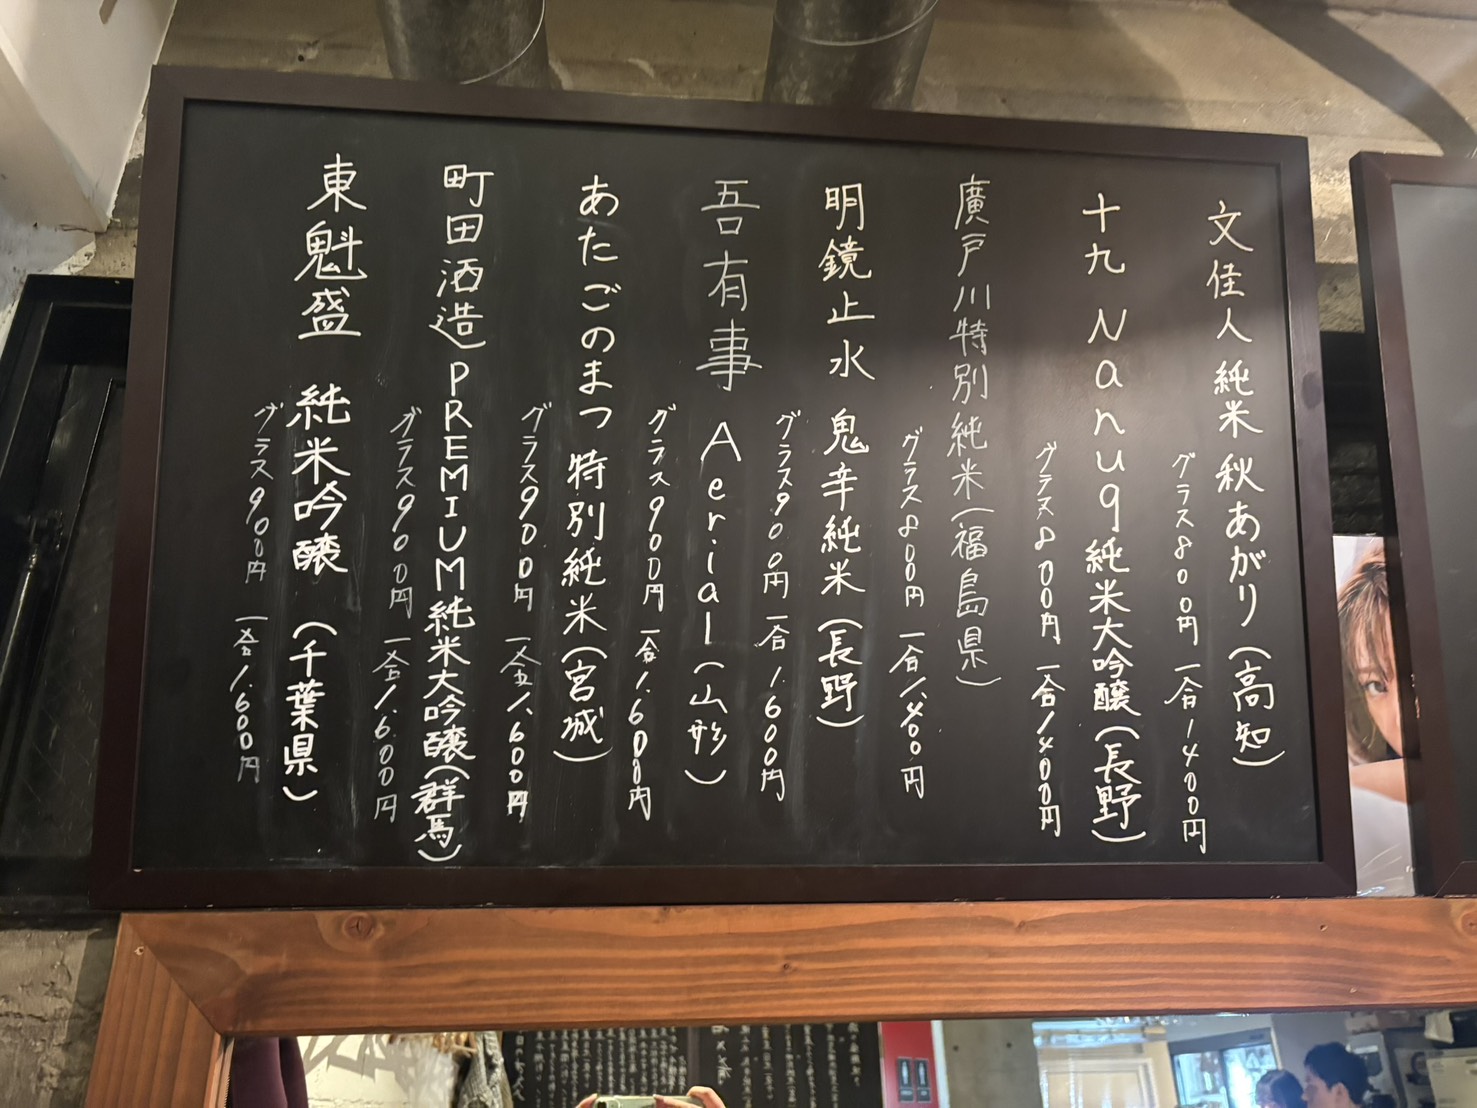 文佳人 純米 秋あがり(高知)
グラス800円 一合1400円
十九 Nanuq純米大吟醸(長野)
グラス800円 一合1400円
廣戸川特別純米(福島県)
グラス800円 一合1.400円
明鏡止水 鬼辛純米(長野)
グラス900円 一合1.600円
吾有事 Aerial(山形)
グラス900円 一合1.600円
あたごのまつ 特別純米(宮城)
グラス900円 一合1.600円
町田酒造PREMIUM純米大吟醸(群馬)
グラス900円 一合1.600円
東魁盛 純米吟醸 (千葉県)
グラス900円 一合1.600円